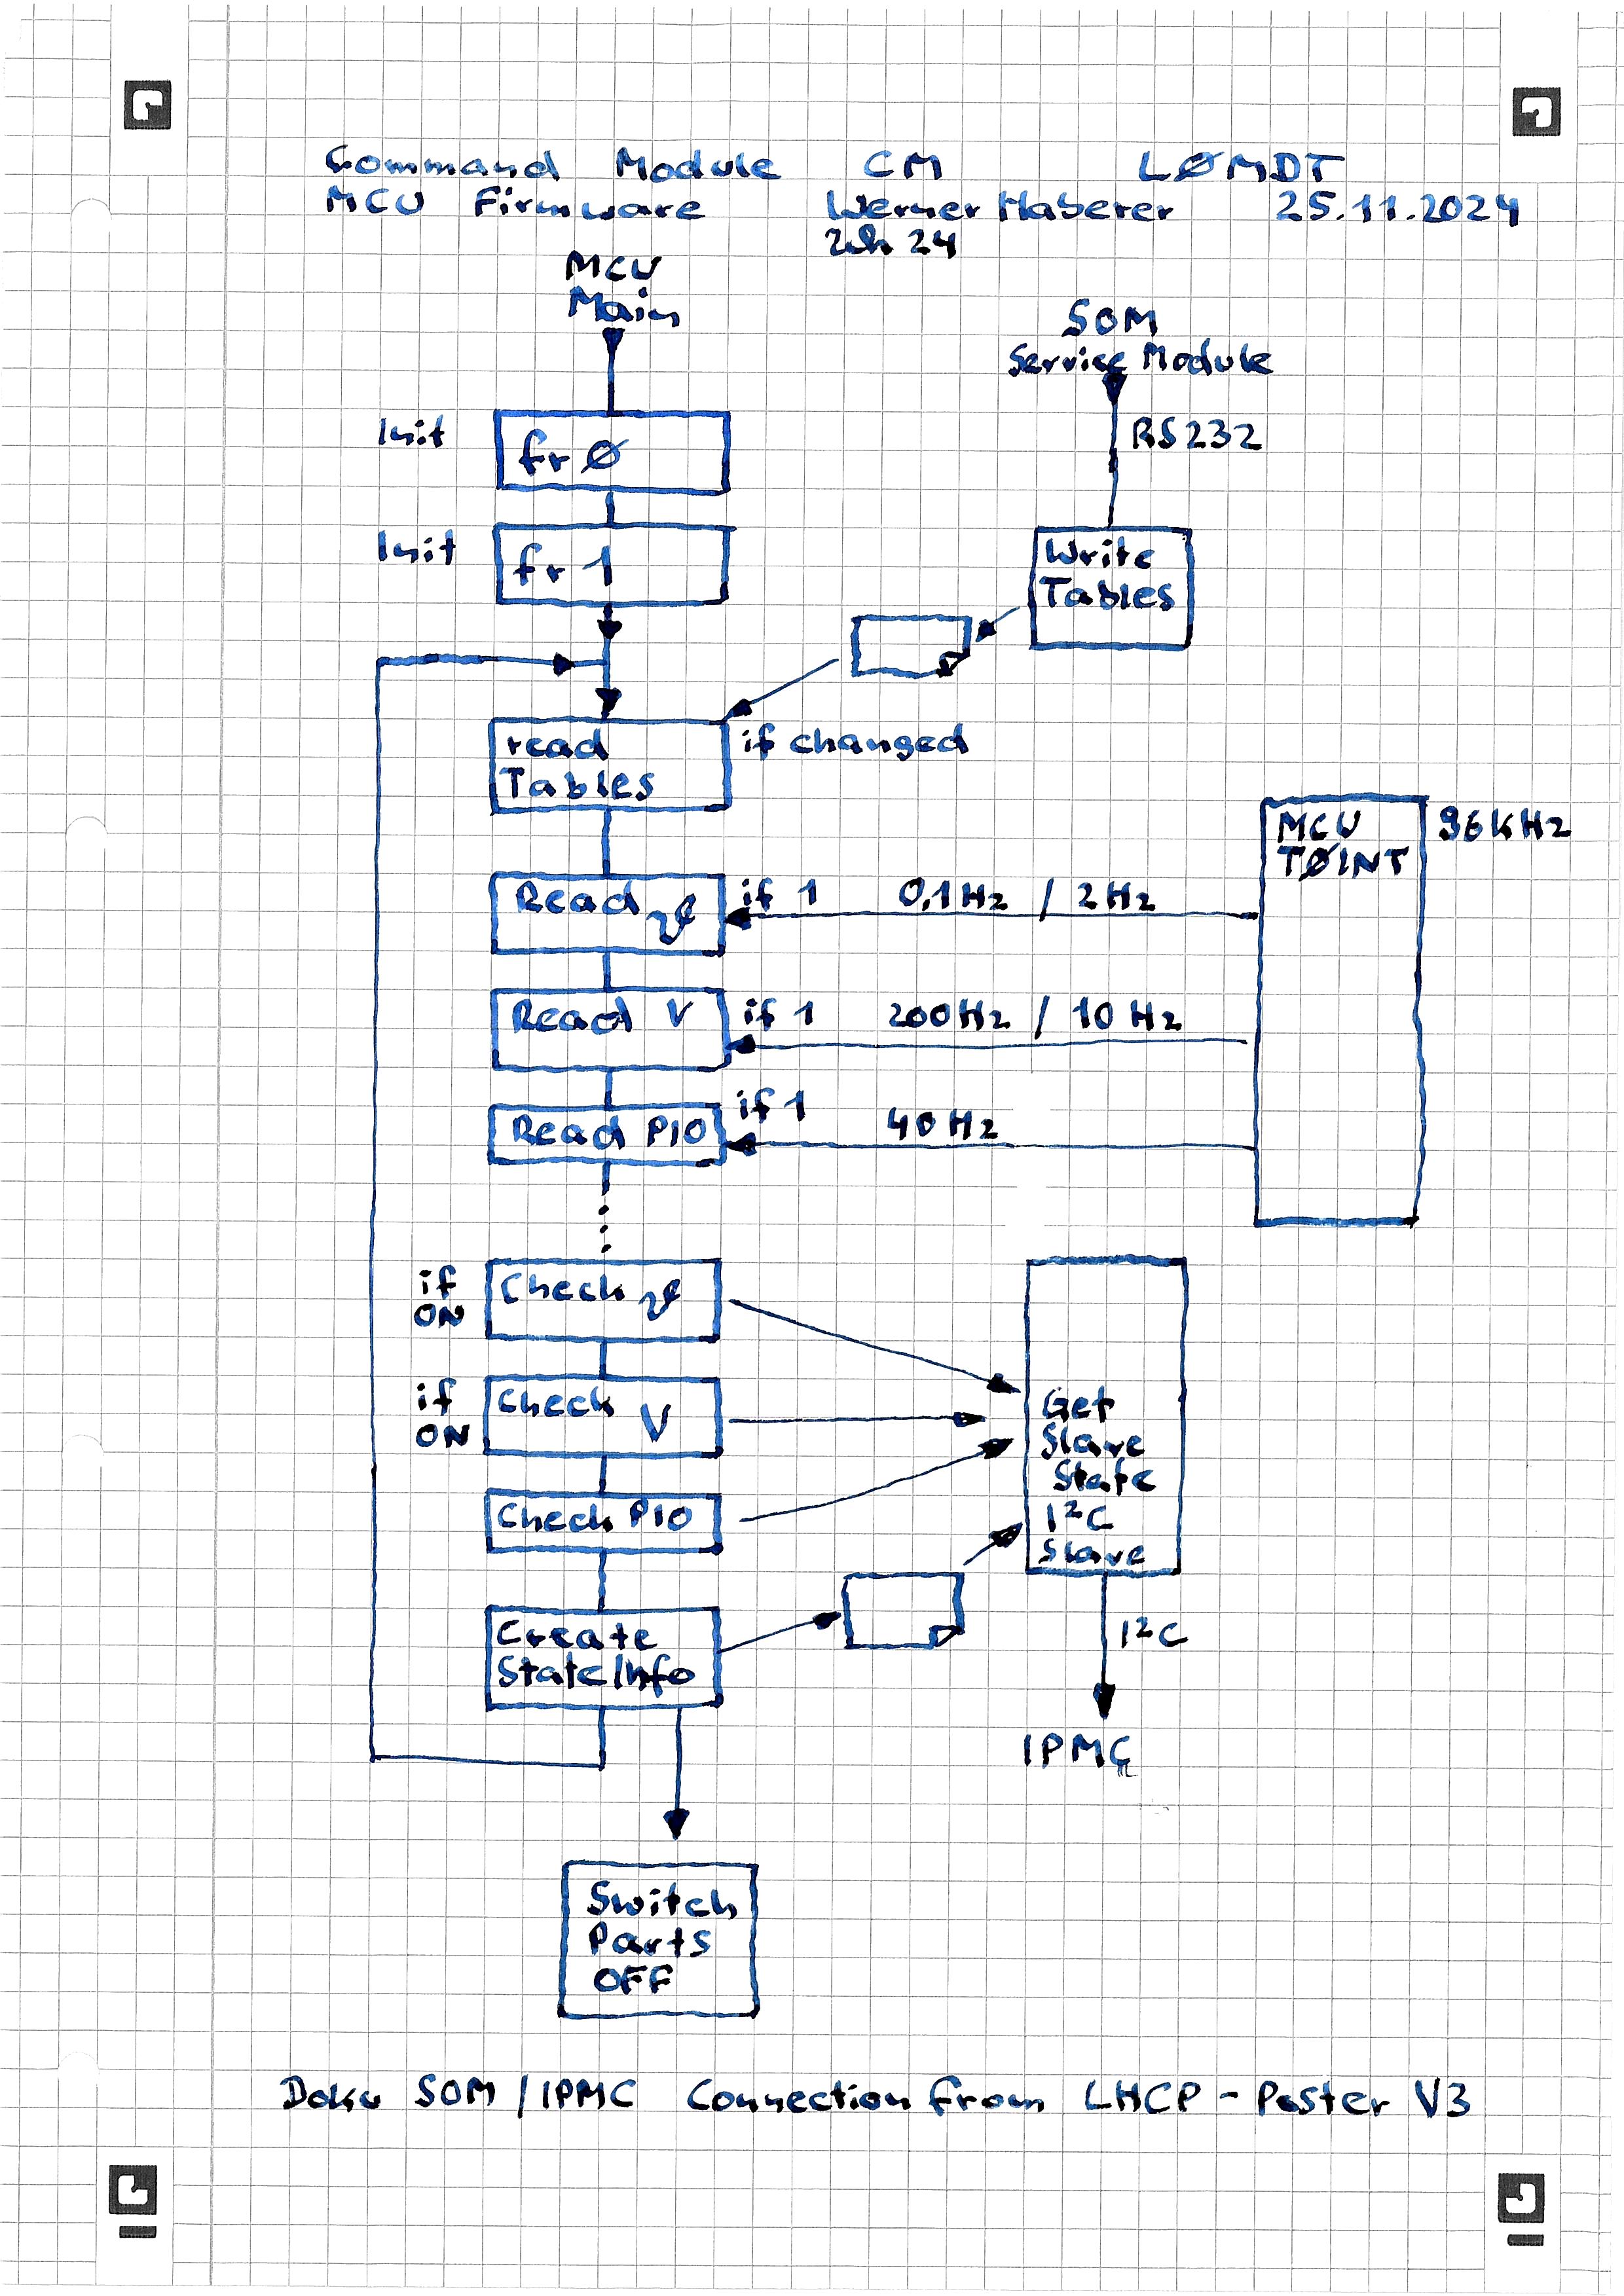 Command Module CM LØMDT
MCU Firmware Werner Haberer 25.11.2024
24
MCU
Main
SOM
Service Module
RS232
Init
fr Ø
Init
fr 1
Write
Tables
read
Tables
if changed
MCU
TØINT
96KHz
Read ϑ
if 1 0,1Hz / 2Hz
Read V
if 1 200Hz / 10Hz
Read PIO
if 1 40Hz
if
ON
Check ϑ
if
ON
Check V
Check PIO
Get
Slave
State
I²C
Slave
Create
State Info
I²C
IPMC
Switch
Parts
OFF
Doku SOM / IPMC Connection from LHCP - Poster V3